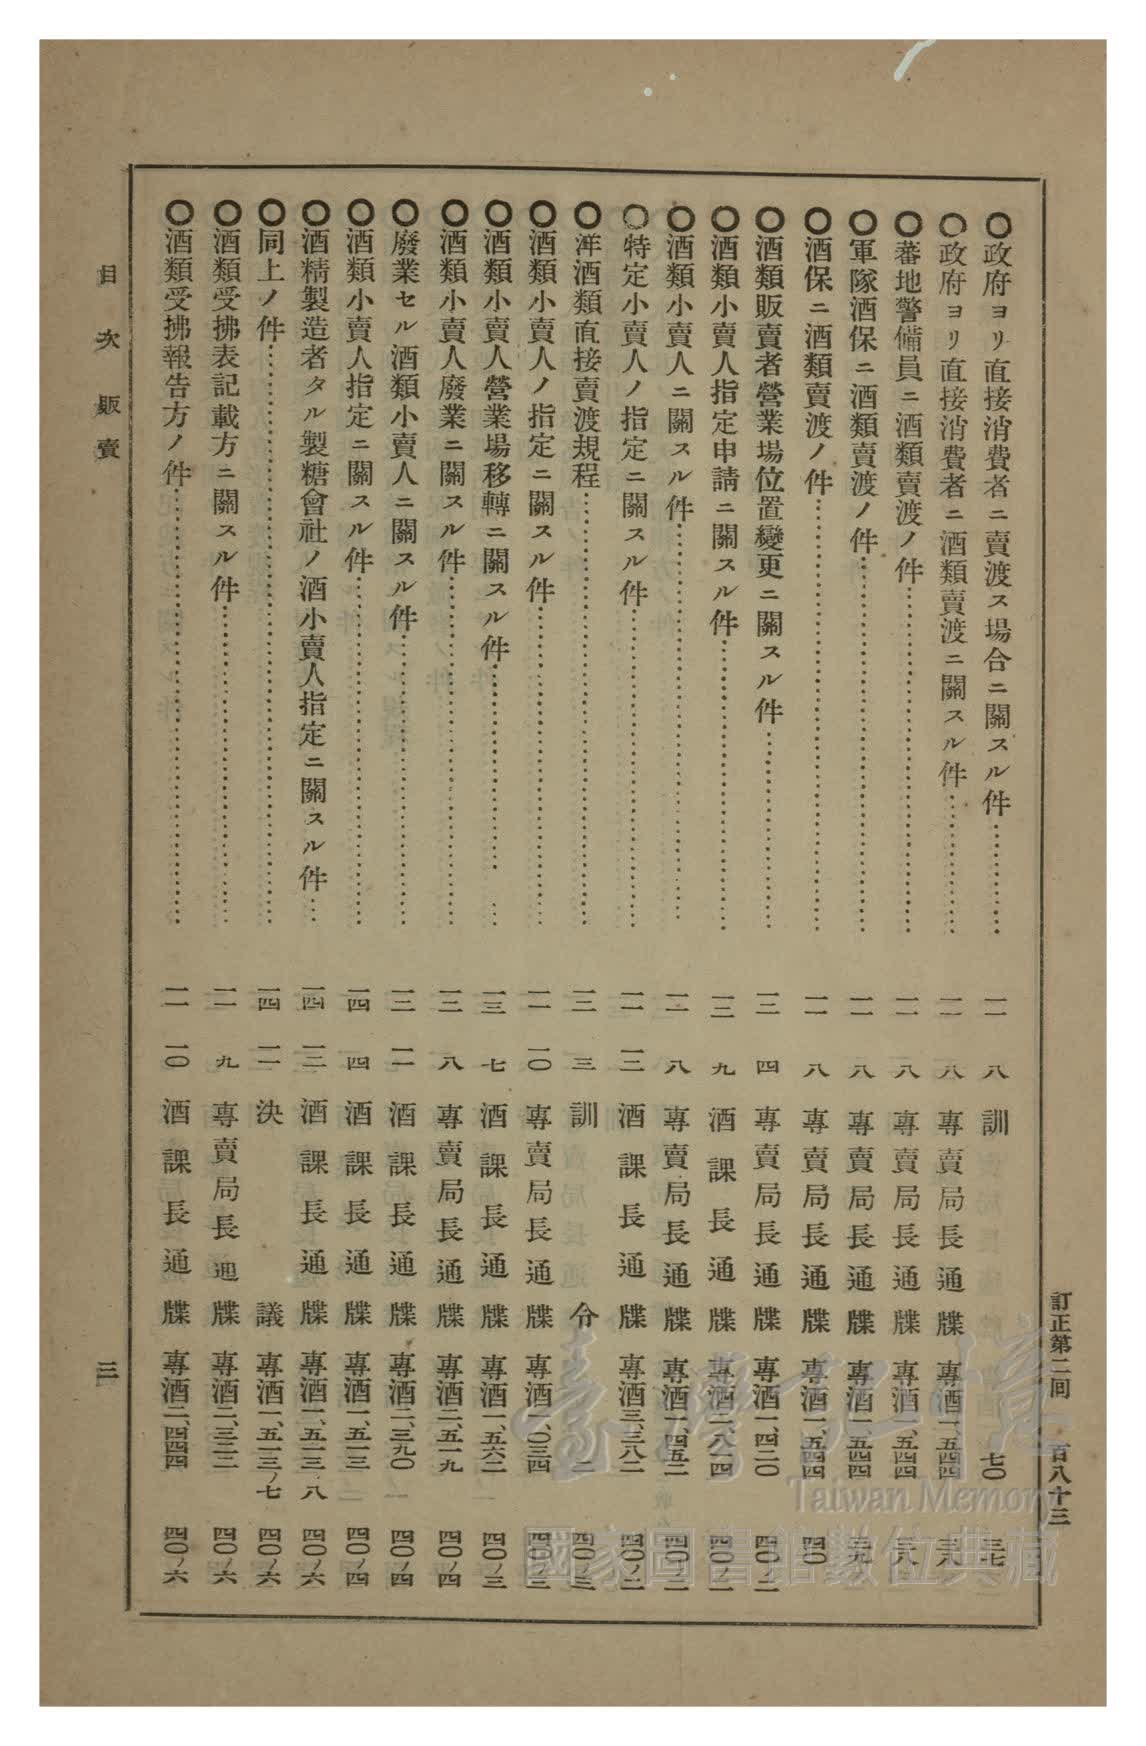 訂正第二回 百八十三
〇政府ヨリ直接消費者ニ賣渡ス場合ニ關スル件………… 一一 八 訓 七〇 三七
〇政府ヨリ直接消費者ニ酒類賣渡ニ關スル件………… 一一 八 專賣局長通牒 專酒一、五四四 三八
〇蕃地警備員ニ酒類賣渡ノ件………… 一一 八 專賣局長通牒 專酒一、五四四 三八
〇軍隊酒保ニ酒類賣渡ノ件………… 一一 八 專賣局長通牒 專酒一、五四四 三九
〇酒保ニ酒類賣渡ノ件………… 一一 八 專賣局長通牒 專酒一、五四四 四〇
〇酒類販賣者營業場位置變更ニ關スル件………… 一二 四 專賣局長通牒 專酒一、四二〇 四〇ノ二
〇酒類小賣人指定申請ニ關スル件………… 一三 九 酒課長通牒 專酒二、八一四 四〇ノ二
〇酒類小賣人ニ關スル件………… 一一 八 專賣局長通牒 專酒一、四五二 四〇ノ二
〇特定小賣人ノ指定ニ關スル件………… 一一 一二 酒課長通牒 專酒三、三八二 四〇ノ二
〇洋酒類直接賣渡規程………… 一二 三 訓令 二 四〇ノ三
〇酒類小賣人ノ指定ニ關スル件………… 一一 一〇 專賣局長通牒 專酒一、〇三四 四〇ノ三
〇酒類小賣人營業場移轉ニ關スル件………… 一三 七 酒課長通牒 專酒一、五六二 四〇ノ三
〇酒類小賣人廢業ニ關スル件………… 一二 八 專賣局長通牒 專酒二、五一九 四〇ノ四
〇廢業セル酒類小賣人ニ關スル件………… 一二 一一 酒課長通牒 專酒二、三九〇 四〇ノ四
〇酒類小賣人指定ニ關スル件………… 一四 四 酒課長通牒 專酒一、五一三 四〇ノ四
〇酒精製造者タル製糖會社ノ酒小賣人指定ニ關スル件… 一四 一二 酒課長通牒 專酒一、五一三ノ八 四〇ノ六
〇同上ノ件………… 一四 一一 決議 專酒一、五一三ノ七 四〇ノ六
〇酒類受拂表記載方ニ關スル件………… 一一 九 專賣局長通牒 專酒二、三二二 四〇ノ六
〇酒類受拂報告方ノ件………… 一一 一〇 酒課長通牒 專酒二、四四四 四〇ノ六
目次 販賣 三
臺灣記憶
Taiwan Memory
國家圖書館數位典藏